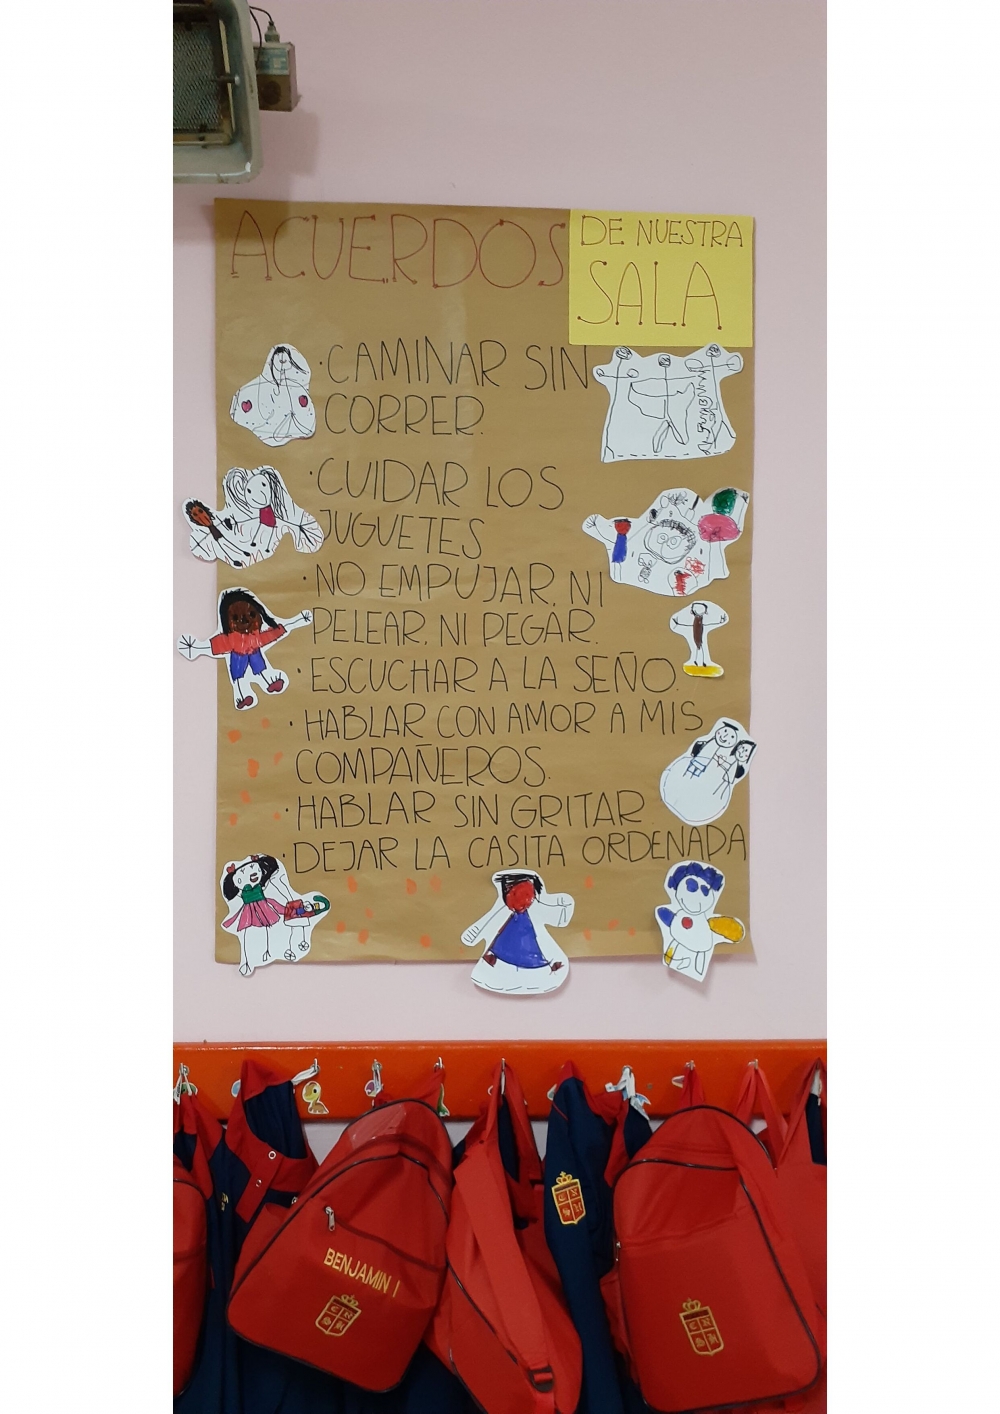 ACUERDOS
DE NUESTRA
SALA
·CAMINAR SIN
CORRER.
·CUIDAR LOS
JUGUETES
·NO EMPUJAR, NI
PELEAR, NI PEGAR.
·ESCUCHAR A LA SEÑO.
·HABLAR CON AMOR A MIS
COMPAÑEROS.
·HABLAR SIN GRITAR.
·DEJAR LA CASITA ORDENADA
BENJAMIN I